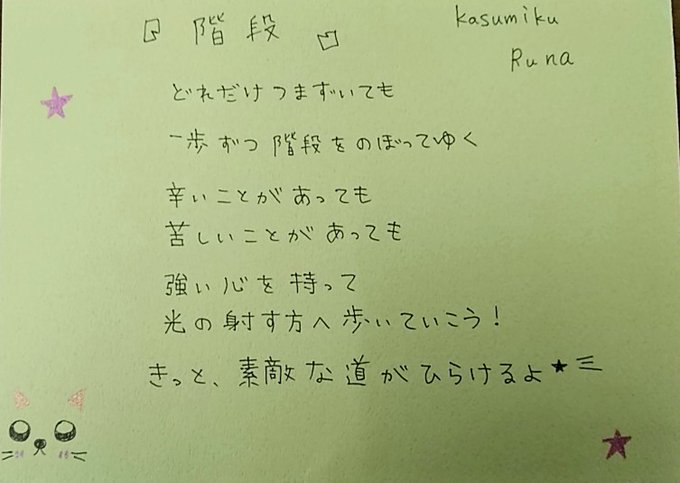 『階段』
kasumiku
Runa
どれだけつまずいても
一歩ずつ階段をのぼってゆく
辛いことがあっても
苦しいことがあっても
強い心を持って
光の射す方へ歩いていこう!
きっと、素敵な道がひらけるよ★彡